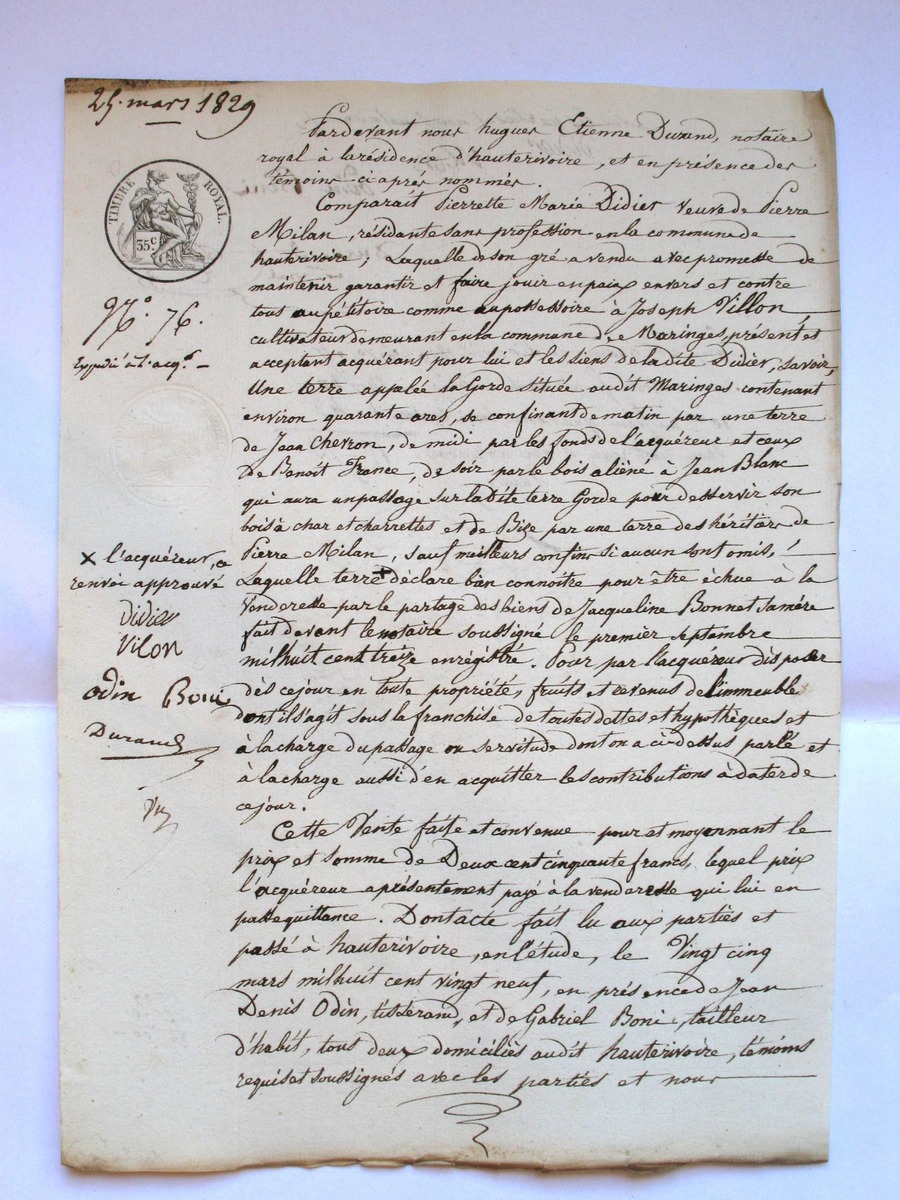 25. mars 1829
TIMBRE ROYAL.
35c
N.° 76.
Expédié à l'acq.r
x l'acquéreur, ce
renvoi approuvé
Didier
Vilon
Odin Boni
Durand
Pardevant nous hugues Etienne Durand, notaire
royal à la résidence d'hauterivoire, et en présence des
témoins ci après nommés.
Comparait Pierrette Marie Didier veuve de Pierre
Milan, résidante sans profession en la commune de
hauterivoire; Laquelle de son gré a vendu avec promesse de
maintenir garantir et faire jouir en paix envers et contre
tous au pétitoire comme au possessoire à Joseph Villon,
cultivateur demeurant en la commune de Maringes, présent et
acceptant acquérant pour lui et les siens de la dite Didier, Savoir,
Une terre appelée la Gorde située audit Maringes contenant
environ quarante ares, se confinant de matin par une terre
de Jean Chevron, de midi par les fonds de l'acquéreur et ceux
de Benoît France, de soir par le bois aliéné à Jean Blanc
qui aura un passage sur la dite terre Gorde pour desservir son
bois à char et charrettes et de Bize par une terre des héritiers de
Pierre Milan, sauf meilleurs confins si aucun sont omis,
Laquelle terre x déclare bien connoître pour être échue à la
Venderesse par le partage des biens de Jacqueline Bonnet sa mère
fait devant le notaire soussigné le premier septembre
mil huit cent treize enrégistré. Pour par l'acquéreur disposer
dès ce jour en toute propriété, fruits et revenus de l'immeuble
dont il s'agit sous la franchise de toutes dettes et hypothèques et
à la charge du passage ou servitude dont on a ci-dessus parlé et
à la charge aussi d'en acquitter les contributions à dater de
ce jour.
Cette Vente faite et convenue pour et moyennant le
prix et somme de Deux cent cinquante francs, lequel prix
l'acquéreur a présentement payé à la venderesse qui lui en
passe quittance. Dont acte fait lu aux parties et
passé à hauterivoire, en l'étude, le Vingt cinq
mars mil huit cent vingt neuf, en présence de Jean
Denis Odin, tisserand, et de Gabriel Boni, tailleur
d'habit, tous deux domiciliés audit hauterivoire, témoins
requis et soussignés avec les parties et nous